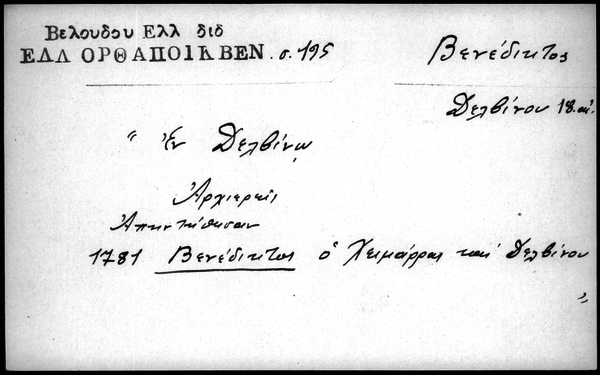 Βελουδου Ελλ διδ
ΕΛΛ ΟΡΘ ΑΠΟΙΚ ΒΕΝ. σ. 195
Βενέδικτος
Δελβίνου 18. αἰ.
" Ἐν Δελβίνῳ
Ἀρχιερεῖς
Ἀπηντήθησαν
1781 Βενέδικτος ὁ Χειμάρρας καὶ Δελβίνου
"